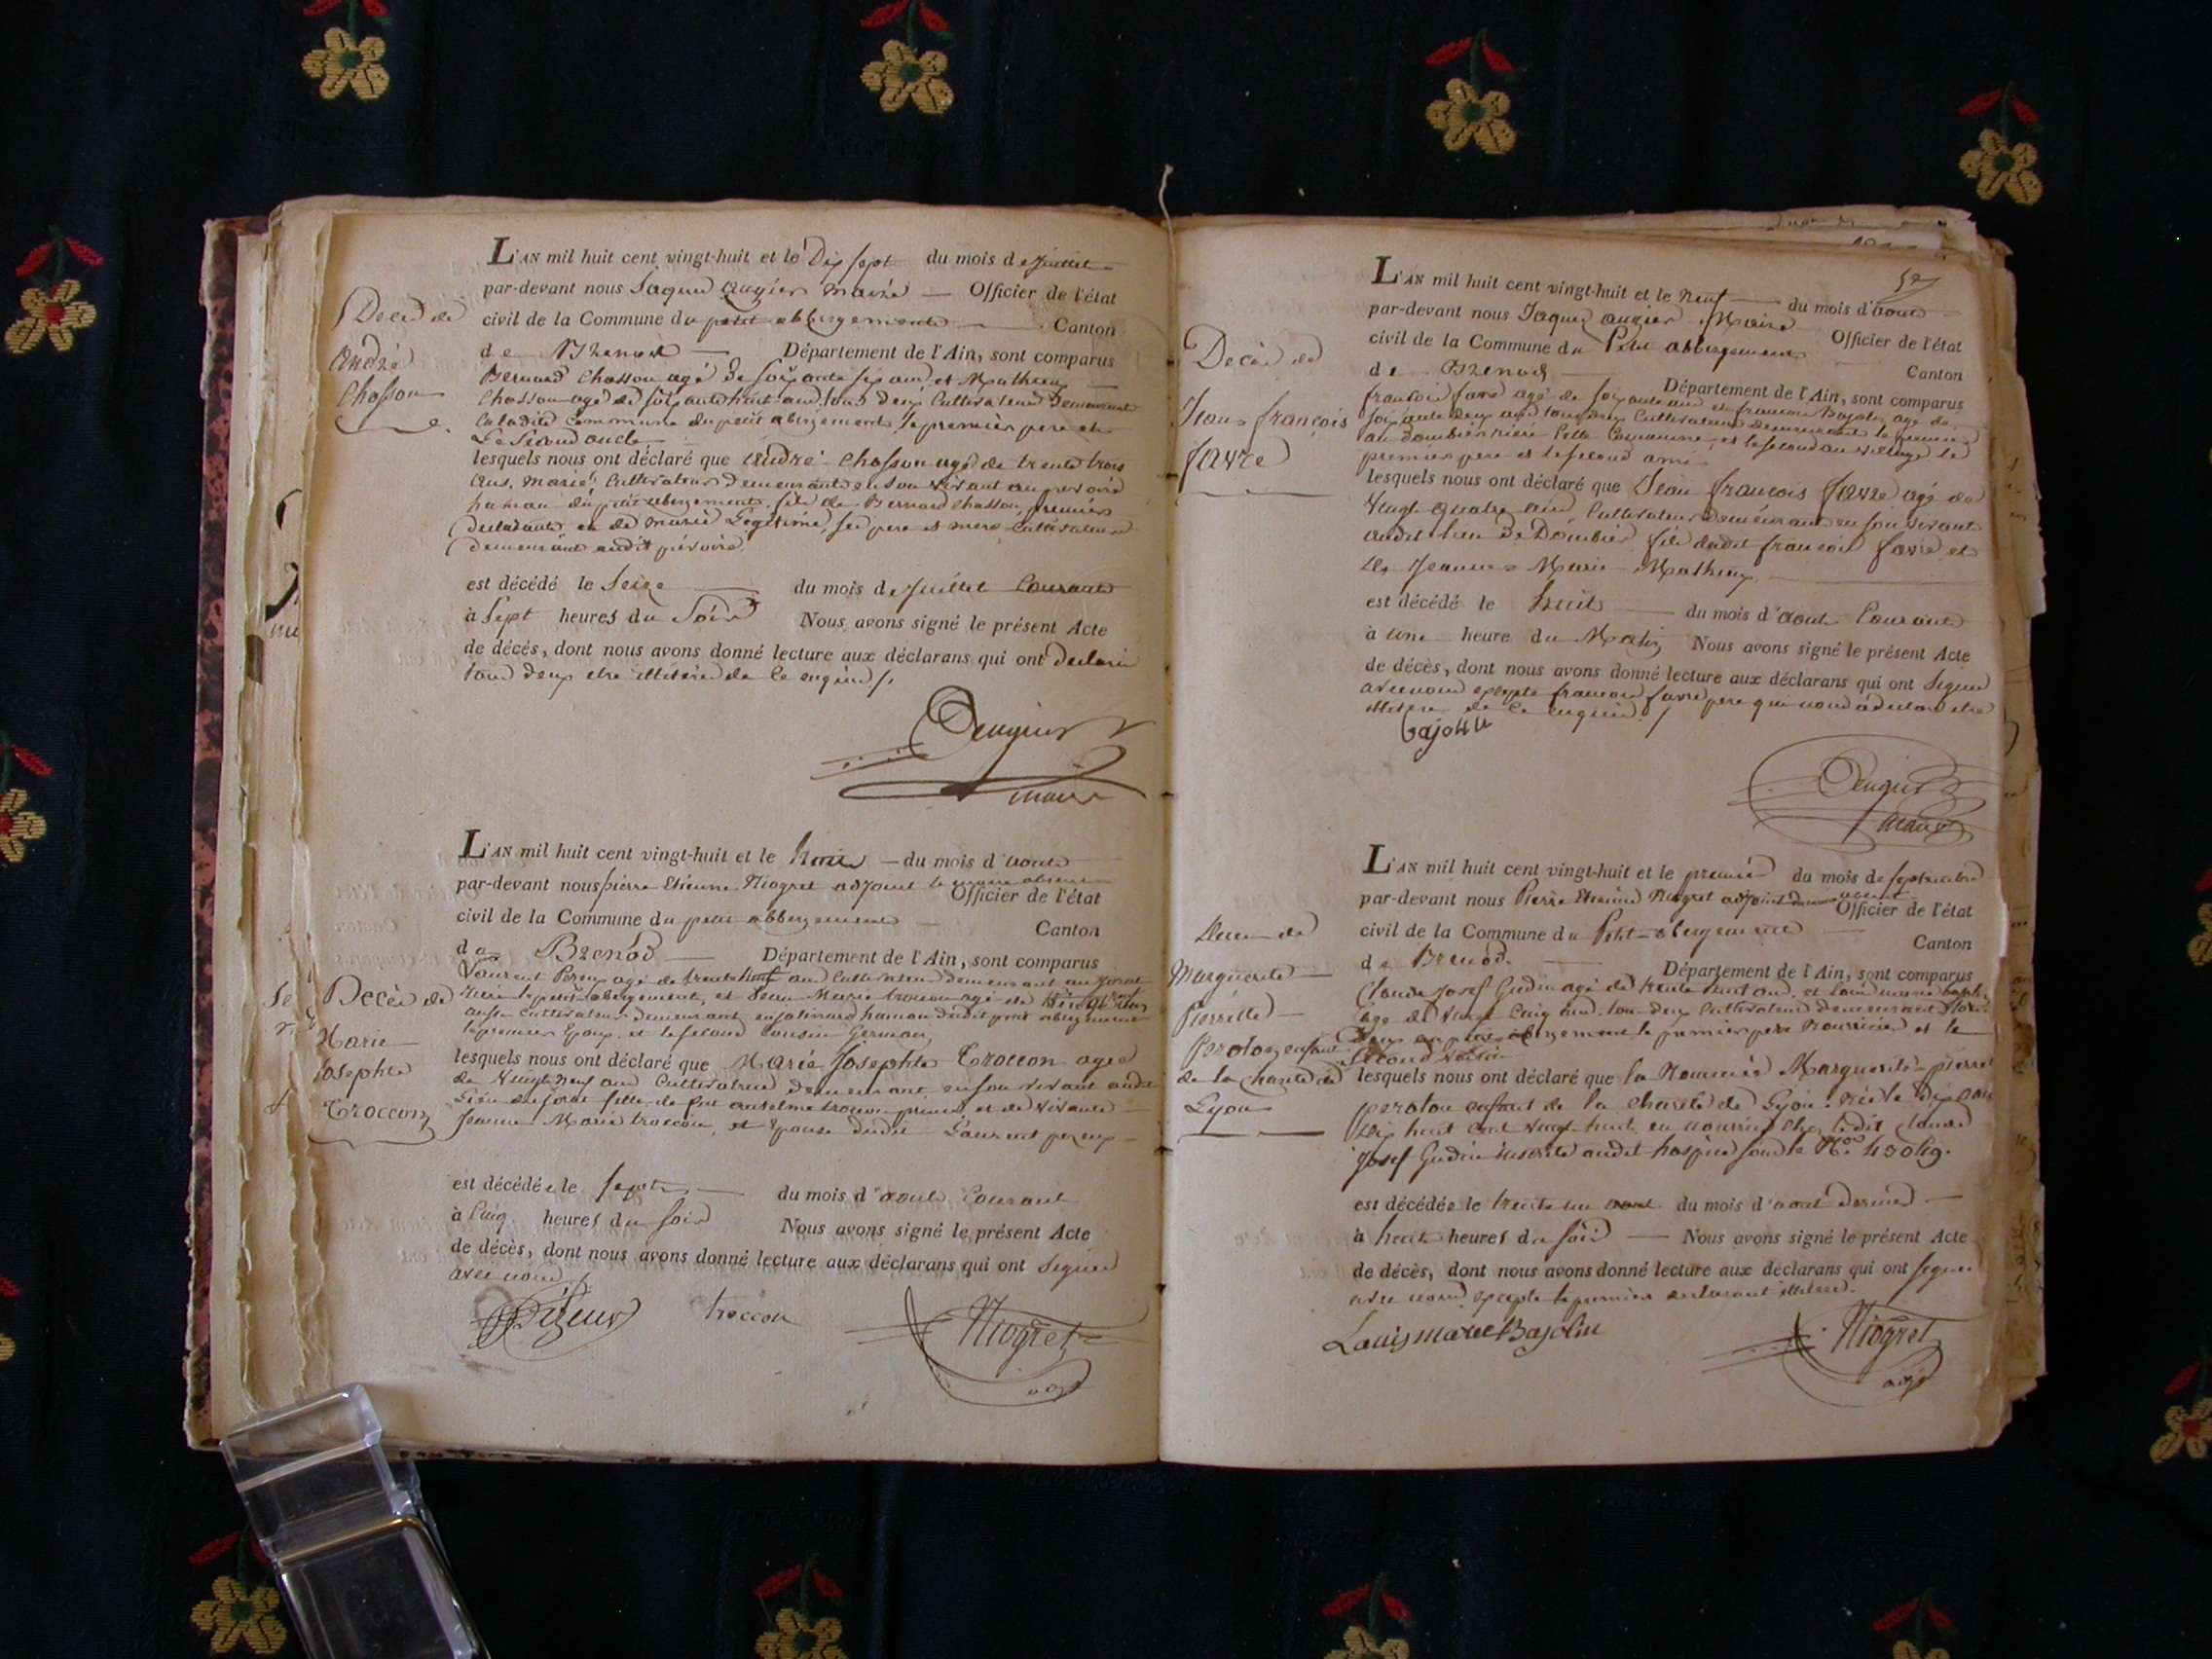 Décès de
André
Chosson
L'AN mil huit cent vingt-huit et le Dix sept du mois de Juillet
par-devant nous Jaques augier maire Officier de l'état
civil de la Commune du petit abbergement Canton
de Brenod Département de l'Ain, sont comparus
Bernard Chosson agé de soixante six ans et Mathieu
Chosson agé de soixante huit ans tous deux Cultivateurs Demeurant
Commune du petit abergement le premier pere et
Le Second oncle
lesquels nous ont déclaré que André Chosson agé de trente trois
ans, marié, Cultivateur demeurant en son vivant au
hameau du petit abergement fils de Bernard Chosson premier
declarant et de marie ses pere et mere Cultivateurs
demeurant audit
est décédé le Seize du mois de Juillet Courant
à Sept heures du Soir Nous avons signé le présent Acte
de décès, dont nous avons donné lecture aux déclarans qui ont declaré
tous deux etre illitéré de ce enquis /.
maire
Décès de
Marie
Josephte
Troccon
L'AN mil huit cent vingt-huit et le huit du mois d'aout
par-devant nous pierre Etienne Niogret adjoint le maire absent
Officier de l'état
civil de la Commune du petit abbergement
Canton
de Brenod Département de l'Ain, sont comparus
Laurent agé de ans Cultivateur demeurant au
petit abergement, et Jean Marie troccon agé de
aussi Cultivateur demeurant hameau dudit petit abergement
le premier Epoux et le second Cousin Germain
lesquels nous ont déclaré que Marie Josephte Troccon agée
de Vingt neuf ans Cultivatrice demeurant en son vivant audit
Lieu fille de feu anselme troccon et de vivante
Jeanne Marie troccon, et Epouse dudit Laurent
est décédée le sept du mois d'aout Courant
à Cinq heures du soir Nous avons signé le présent Acte
de décès, dont nous avons donné lecture aux déclarans qui ont signé
avec nous /
troccon Niogret
adjt
Décès de
Jean françois
favre
L'AN mil huit cent vingt-huit et le Neuf du mois d'aout
par-devant nous Jaques augier Maire
Officier de l'état
civil de la Commune du Petit abbergement
Canton
de Brenod Département de l'Ain, sont comparus
francois favre agé de soixante ans et francois agé de
soixante deux ans tous deux Cultivateurs Demeurant le premier
au dombier Cette Commune et le second au village le
premier pere et le second ami
lesquels nous ont déclaré que Jean francois favre agé de
Vingt quatre ans Cultivateur Demeurant en son vivant
audit lieu De Dombier fils dudit francois favre et
de Jeanne Marie Mathieu
est décédé le huit du mois d'aout Courant
à une heure du Matin Nous avons signé le présent Acte
de décès, dont nous avons donné lecture aux déclarans qui ont signé
avec nous excepté francois favre pere qui nous a declaré etre
illitéré de ce enquis /
maire
Marguerite
Pierrette
peroton enfant
de la charité de
Lyon
L'AN mil huit cent vingt-huit et le premier du mois de septembre
par-devant nous Pierre Etienne Niogret adjoint
Officier de l'état
civil de la Commune du Petit abergement
Canton
de Brenod Département de l'Ain, sont comparus
Claude Josef Gudin agé de trente huit ans et Louis marie
agé de vingt Cinq ans tous deux Cultivateurs demeurant
petit abergement le premier pere Nourricier et le
second voisin
lesquels nous ont déclaré que la Nommée Marguerite pierrette
peroton enfant de la charité de Lyon née le Dix
Dix huit cent vingt huit en nourrice chez ledit Claude
Josef Gudin inscrite audit hospice sous le No.
est décédée le trente un du mois d'aout dernier
à huit heures du soir Nous avons signé le présent Acte
de décès, dont nous avons donné lecture aux déclarans qui ont signé
avec nous excepté le premier declarant illitéré.
Louis marie Bajolin Niogret
adjt